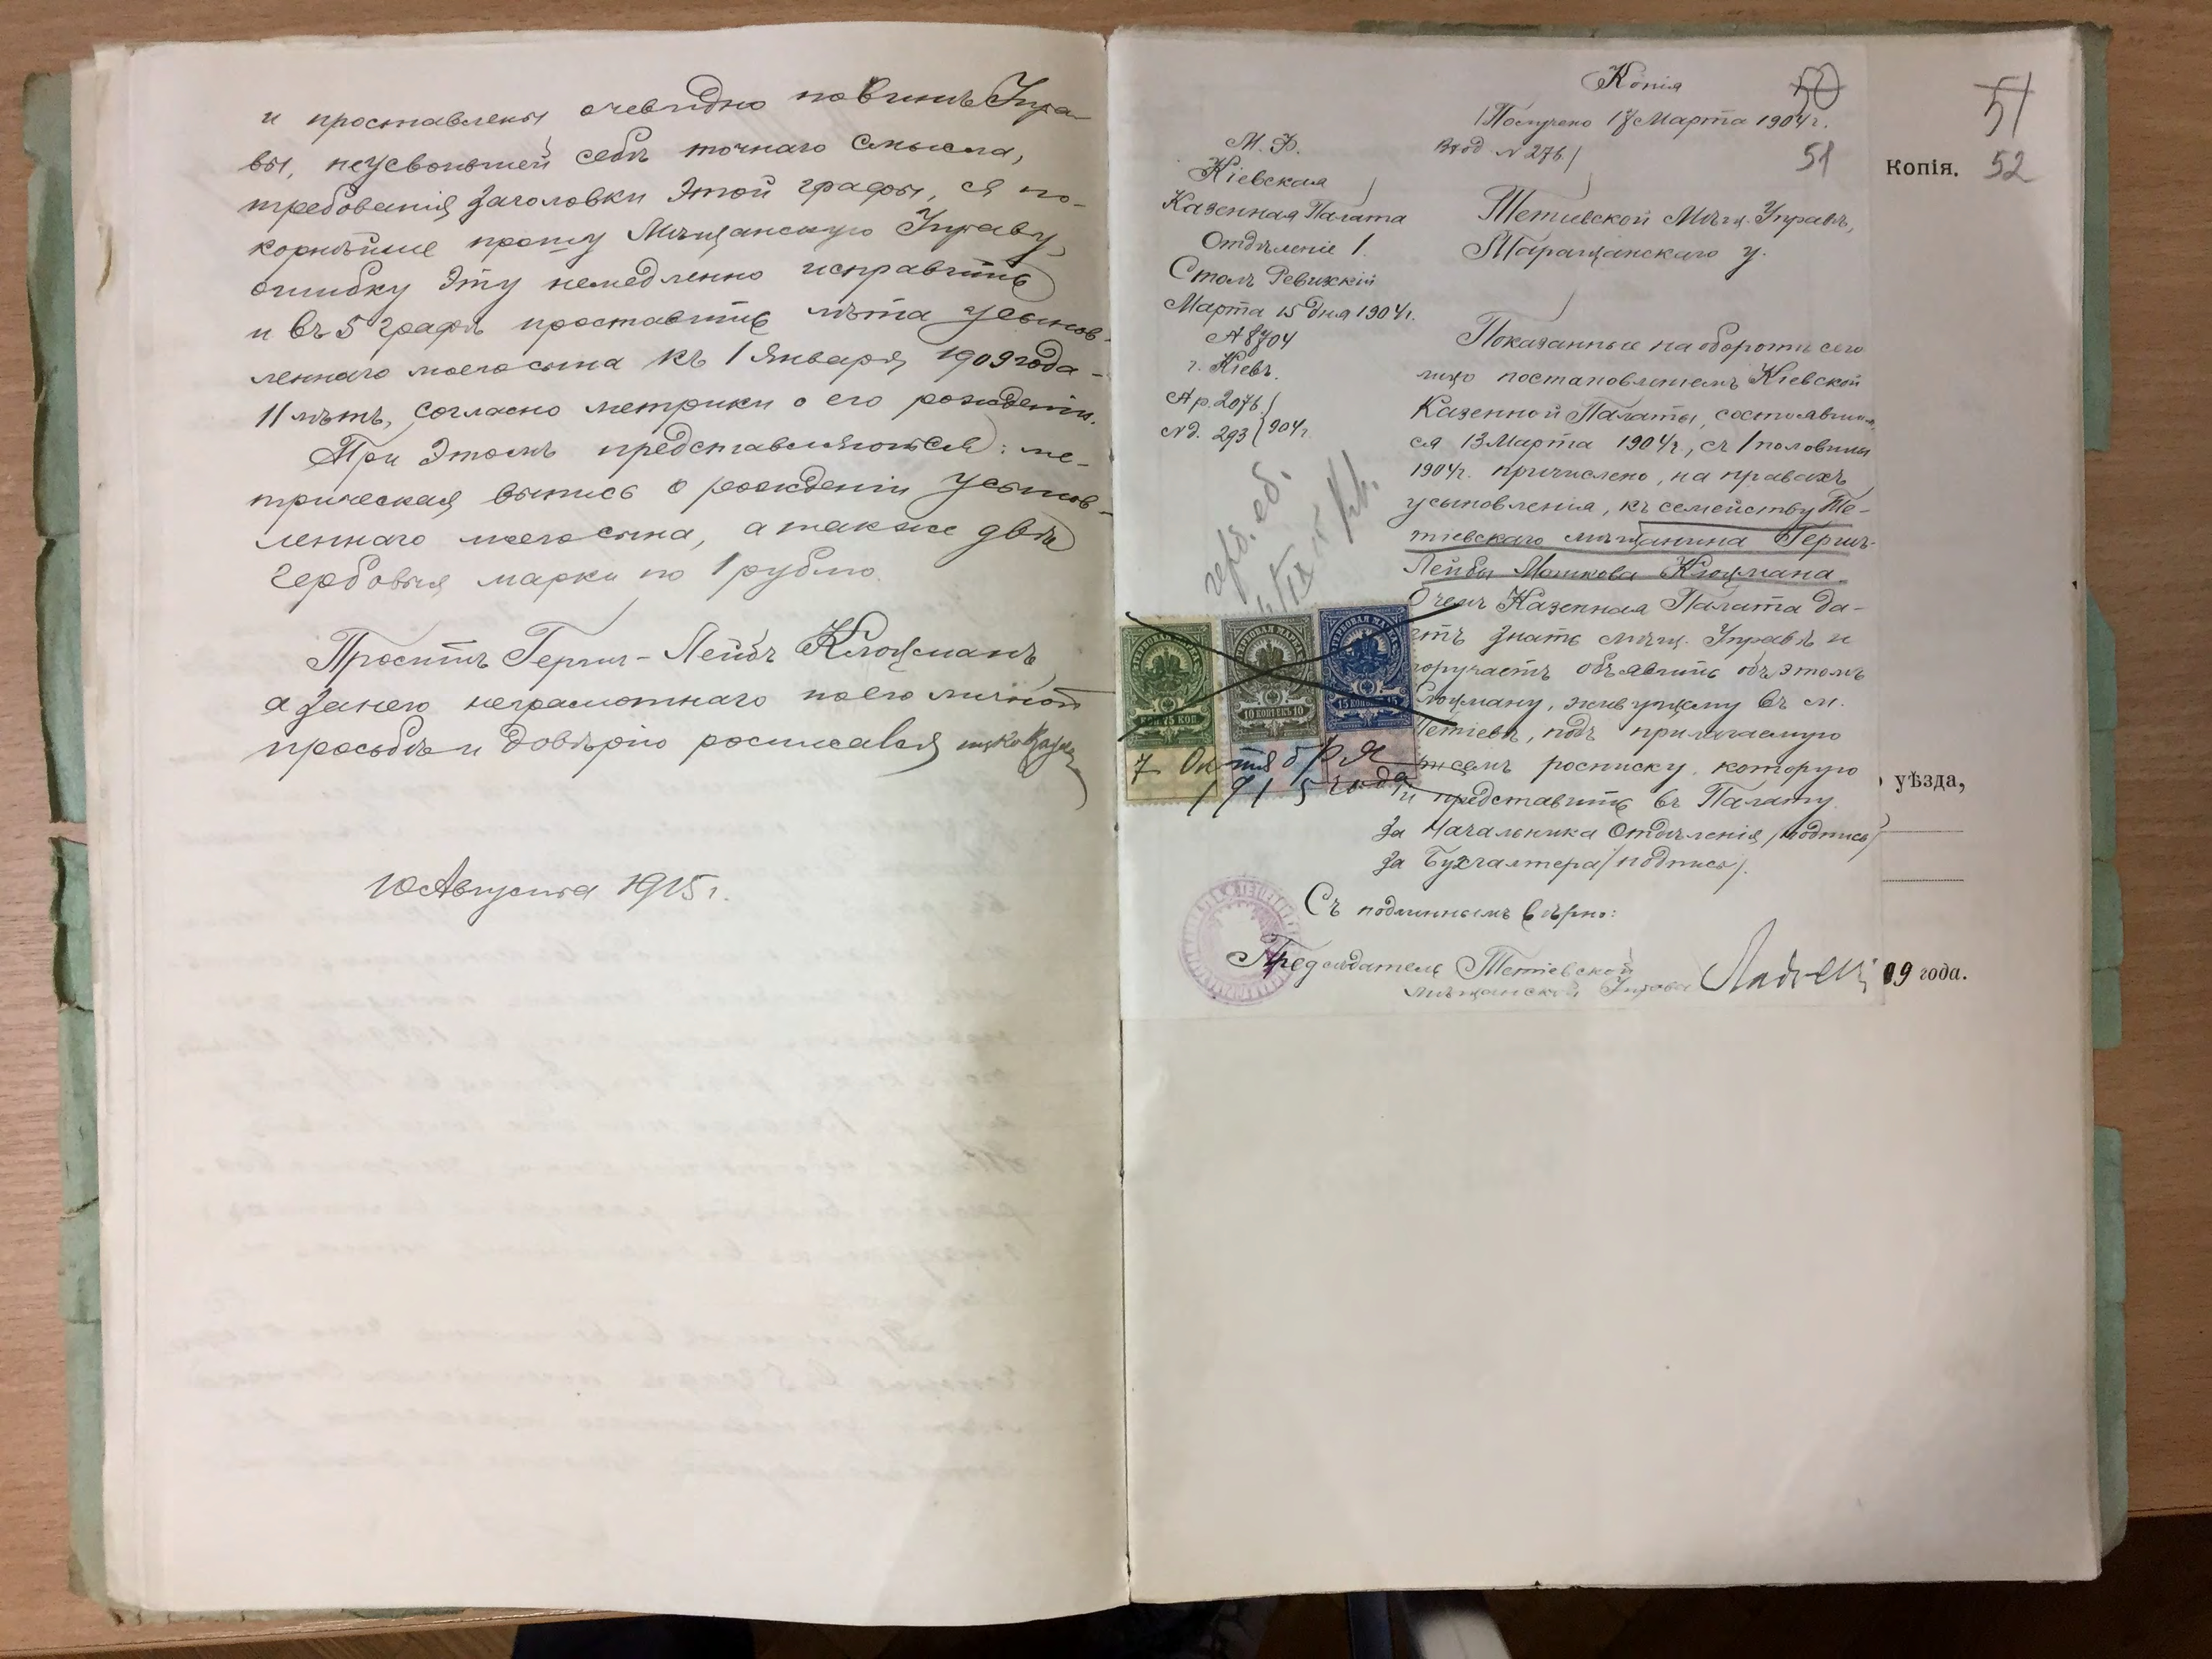 и проставлены очевидно по винѣ Упра-
вы, неусвоившей себѣ точнаго смысла,
требованія заголовки этой графы, я по-
корнѣйше прошу Мѣщанскую Управу,
ошибку эту немедленно исправить
и въ 5 графѣ проставить лѣта усынов-
леннаго моего сына къ 1 Января 1909 года -
11 лѣтъ, согласно метрики о его рожденіи.
При этомъ представляются: ме-
трическая выпись о рожденіи усынов-
леннаго моего сына, а также двѣ
гербовыя марки по 1 рублю.
Проситъ Гершъ-Лейбъ Клоцманъ,
а за него неграмотнаго по его личной
просьбѣ и довѣрію росписался
10 Августа 1915 г.
Копія
50
/Получено 17 Марта 1904 г.
Вход № 276/
51
М. Ф.
Кіевская
Казенная Палата
Отдѣленіе 1.
Столъ Ревизскій
Марта 15 дня 1904 г.
№ 8704
г. Кіевъ.
Ар. 2076
№ д. 293 / 904 г.
Тетіевской Мѣщ. Управѣ,
Таращанскаго у.
Показанные на оборотѣ сего
лицо постановленіемъ Кіевской
Казенной Палаты, состоявшим-
ся 13 Марта 1904 г., съ 1 половины
1904 г. причислено, на правахъ
усыновленія, къ семейству Те-
тіевскаго мѣщанина Гершъ-
Лейбы Мошкова Клоцмана.
О чемъ Казенная Палата да-
етъ знать мѣщ. Управѣ и
поручаетъ объявить объ этомъ
Клоцману, живущему въ м.
Тетіевѣ, подъ прилагаемую
при семъ росписку, которую
и представить въ Палату.
За Начальника Отдѣленія /подпись/
За Бухгалтера /подпись/.
Съ подлиннымъ вѣрно:
Предсѣдатель Тетіевской
мѣщанской Управы
герб. сб.
ГЕРБОВАЯ МАРКА
КОП. 75 КОП.
ГЕРБОВАЯ МАРКА
10 КОПѢЕКЪ 10
ГЕРБОВАЯ МАРКА
15 КОПѢЕКЪ 15
7 Октября
1915 года
51
Копія. 52
уѣзда,
09 года.